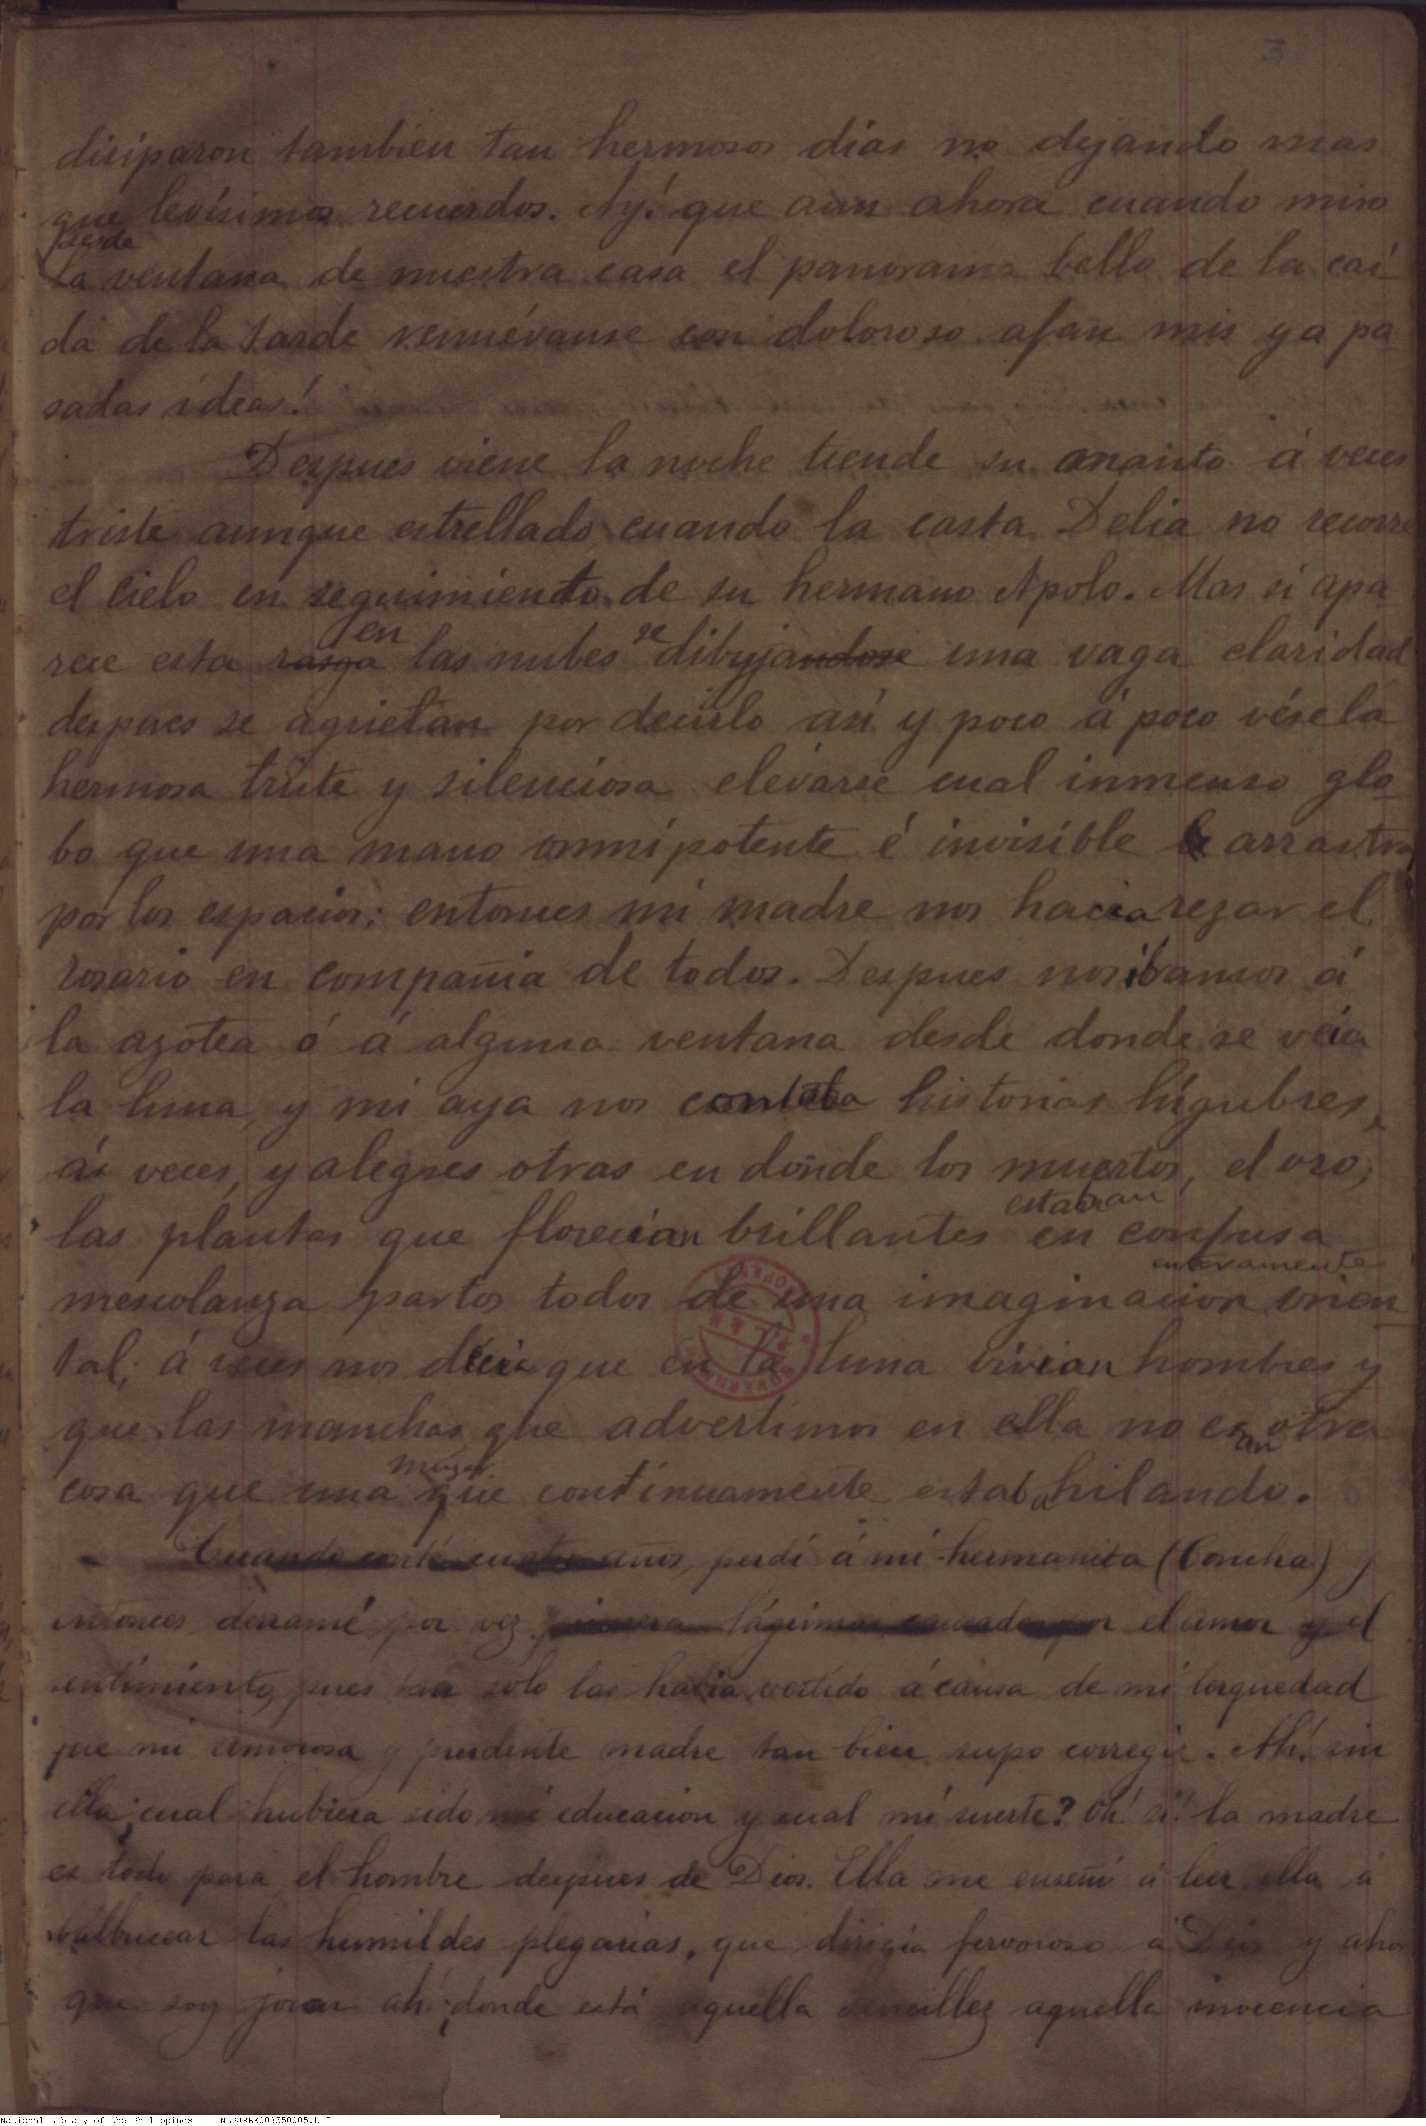 3
disiparon tambien tan hermosos dias no dejando mas
que levísimos recuerdos. Ay! que aun ahora cuando miro
desde
la ventana de nuestra casa el panorama bello de la caí
da de la tarde renuévanse con doloroso afan mis ya pa
sadas ideas!
Despues viene la noche tiende su manto á veces
triste aunque estrellado cuando la casta Delia no recorre
el cielo en seguimiento de su hermano Apolo. Mas si apa
en se
rece esta rasga las nubes dibujandose una vaga claridad
despues se agrietan por decirlo así y poco á poco vésela
hermosa triste y silenciosa elevarse cual inmenso glo
bo que una mano omnipotente é invisible arrastra
por los espacios: entonces mi madre nos hacia rezar el
rosario en compañia de todos. Despues nos ibamos á
la azotea ó á alguna ventana desde donde se veia
la luna, y mi aya nos contaba historias lúgubres,
á veces, y alegres otras en donde los muertos, el oro,
estaban
las plantas que florecian brillantes en confusa
enteramente
mescolanza partos todos de una imaginacion orien
tal; á veces nos decia que en la luna vivian hombres y
que las manchas que advertimos en ella no eran otra
muger
cosa que una que contínuamente estaba hilando.
Cuando conté cuatro años, perdí á mi hermanita (Concha) y
entonces derramé por vez primera lágrimas causadas por el amor y el
sentimiento, pues tan solo las habia vertido á causa de mi terquedad
que mi amorosa y prudente madre tan bien supo corregir. Ah! sin
ella, cual hubiera sido mi educacion y cual mi suerte? Oh! si! la madre
es todo para el hombre despues de Dios. Ella me enseñó á leer, ella á
balbucear las humildes plegarias, que dirigía fervoroso á Dios y ahora
que soy joven ah! ¿donde está aquella sencillez aquella inocencia
National Library of the Philippines